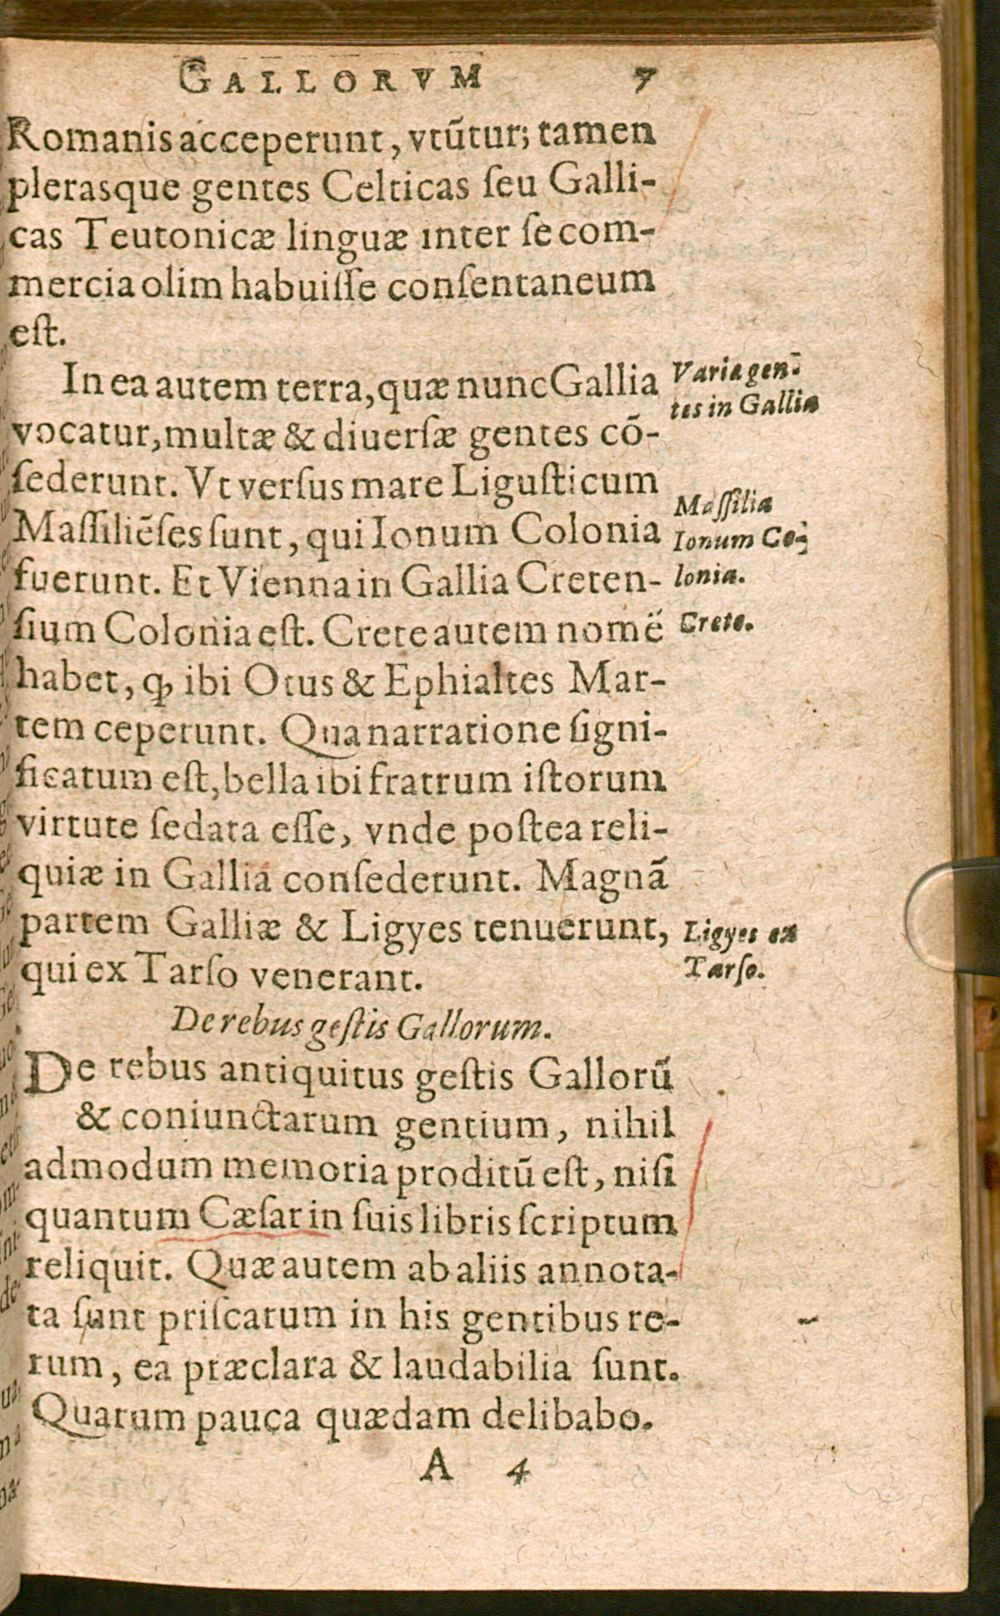 GALLORVM 7
Romanis acceperunt, vtũtur; tamen
plerasque gentes Celticas ſeu Galli-
cas Teutonicæ linguæ inter ſe com-
mercia olim habuiſſe conſentaneum
eſt.
In ea autem terra, quæ nunc Gallia
vocatur, multæ & diuerſæ gentes cõ-
ſederunt. Vt verſus mare Liguſticum
Maſſiliẽſes ſunt, qui Ionum Colonia
fuerunt. Et Vienna in Gallia Creten-
ſium Colonia eſt. Crete autem nomẽ
habet, ꝙ ibi Otus & Ephialtes Mar-
tem ceperunt. Qua narratione ſigni-
ficatum eſt, bella ibi fratrum iſtorum
virtute ſedata eſſe, vnde poſtea reli-
quiæ in Gallia conſederunt. Magnã
partem Galliæ & Ligyes tenuerunt,
qui ex Tarſo venerant.
Varia gen-
tes in Gallia
Maſſilia
Ionum Co-
lonia.
Crete.
Ligyes ex
Tarſo.
De rebus geſtis Gallorum.
De rebus antiquitus geſtis Gallorũ
& coniunctarum gentium, nihil
admodum memoria proditũ eſt, niſi
quantum Cæſar in ſuis libris ſcriptum
reliquit. Quæ autem ab aliis annota-
ta ſunt priſcarum in his gentibus re-
rum, ea præclara & laudabilia ſunt.
Quarum pauca quædam delibabo.
A 4